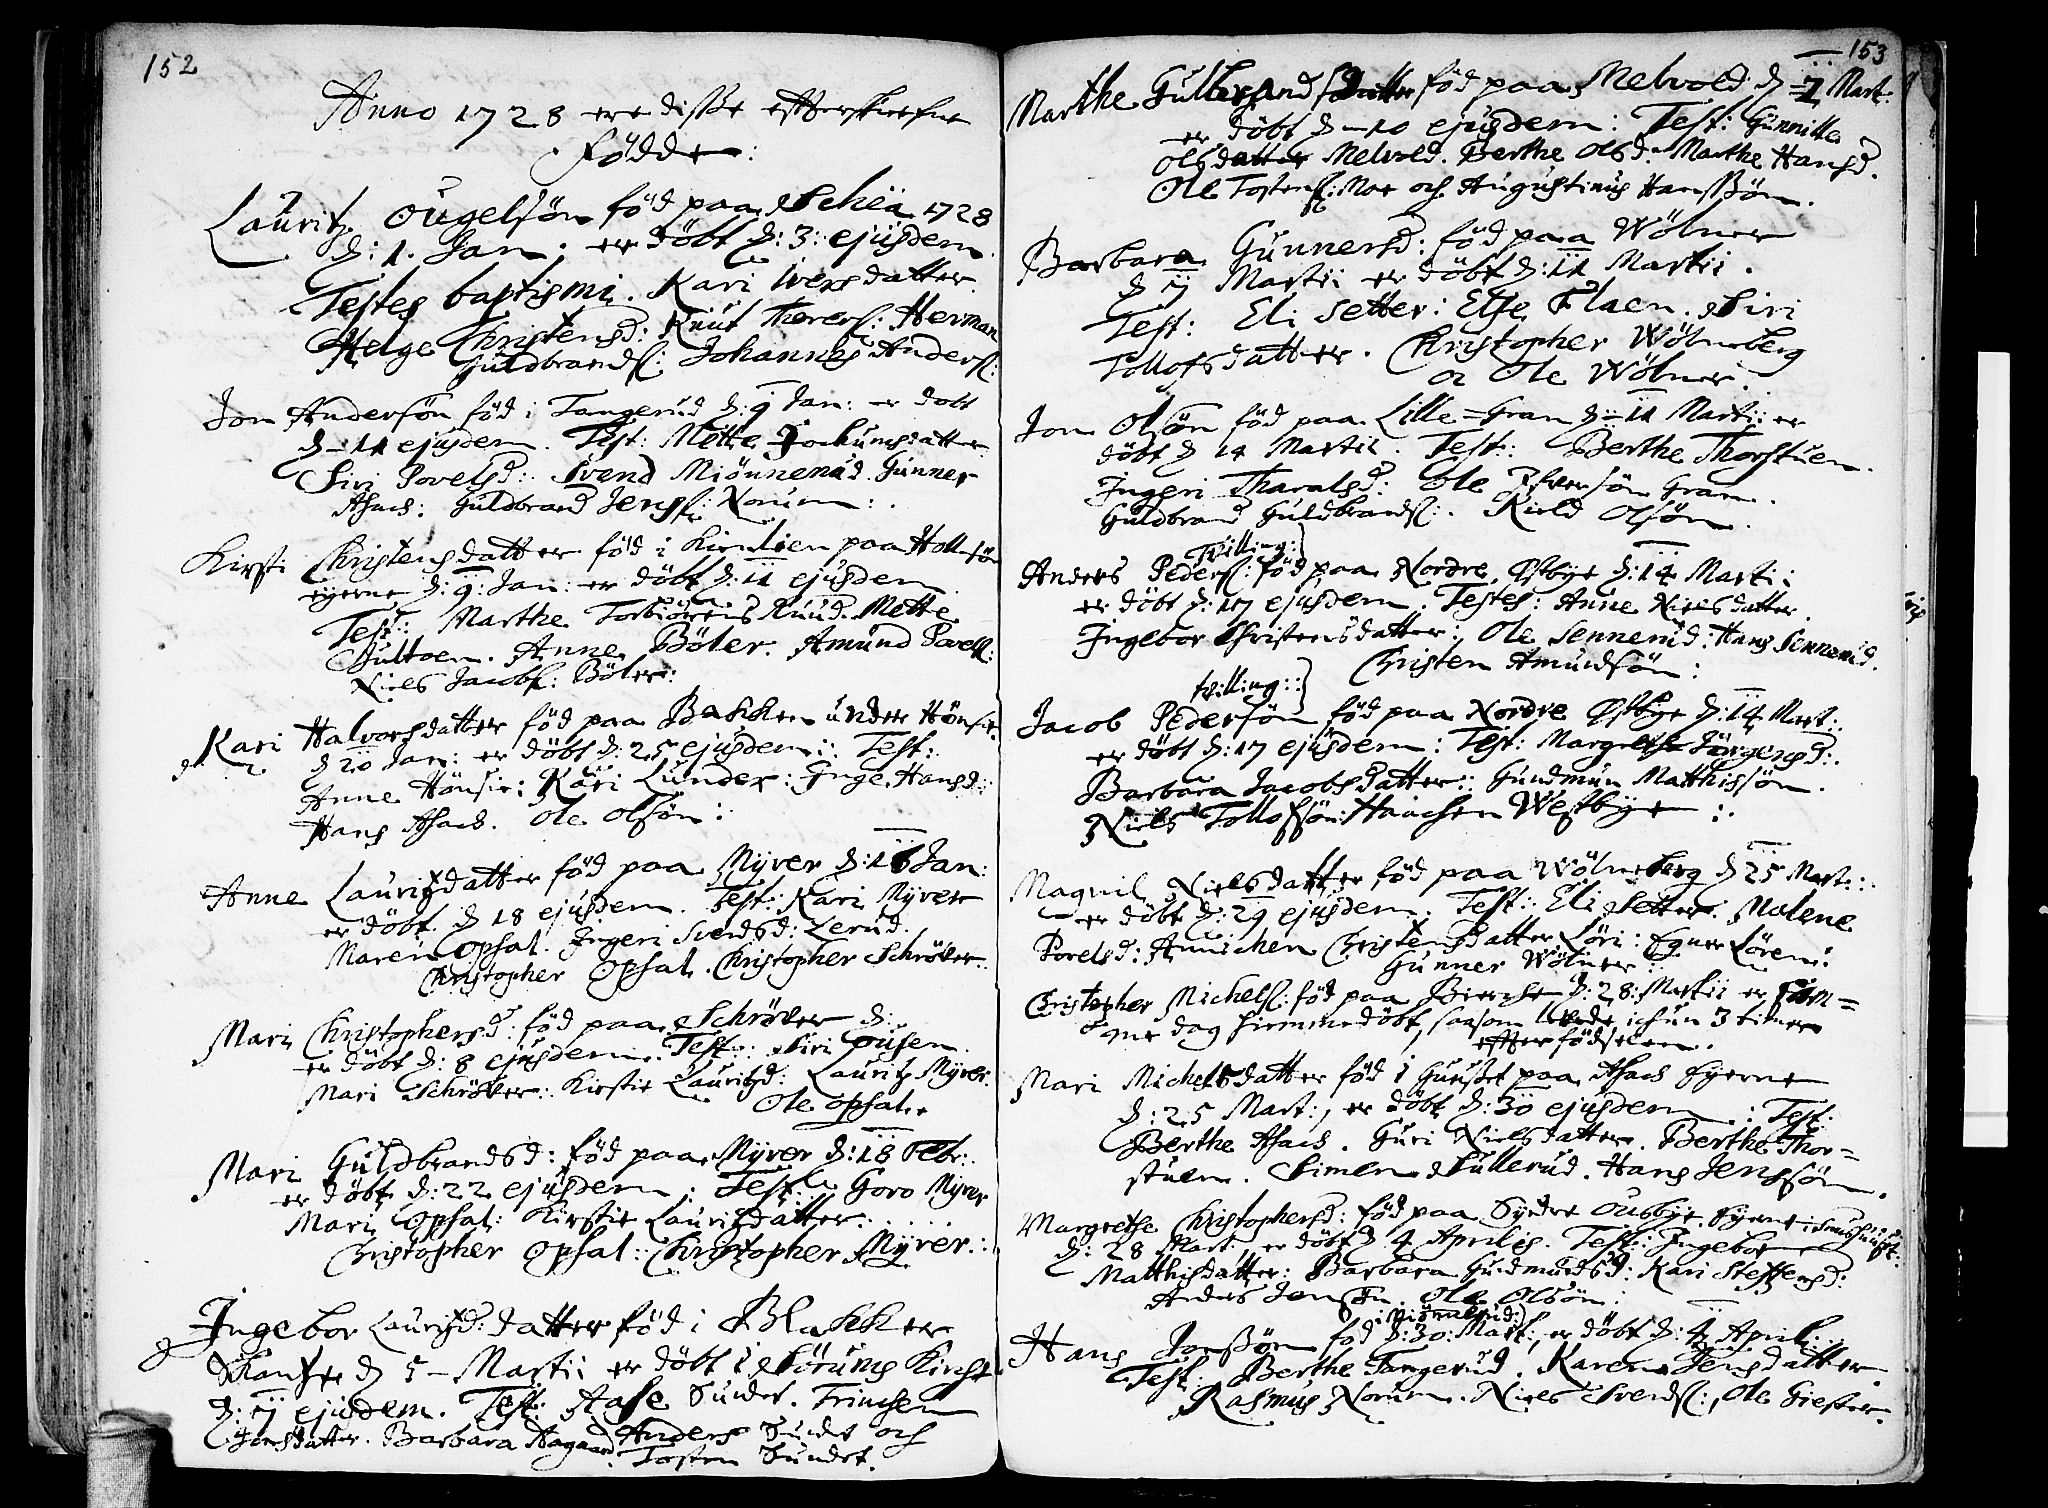 152
Anno 1728 ere disse effterskrefne
Födde:
Lauritz Ougelsön föd paa Schëa 1728
d: 1. Jan: er döbt d: 3: ejusdem
Testes baptismi. Kari Iversdatter
Helge Christensd: Knut Therers: Herman
Guldbrands: Johannes Anders:
Jon Andersön föd i Tangerud d: 9 Jan: er dobt
d 11 ejusdem. Test: Mette Jochumsdatter
Siri Povelsd: Svend Miönnerud Gunner
Asach: Guldbrand Jens: Norum:
Kirsti Christensdatter föd i paa
eyerne d: 9: Jan: er döbt d: 11 ejusdem
Test: Marthe Torbiörens Ruud. Mette
Hultoen. Anne Böler. Amund Povels:
Niels Jacobs: Böler:
Kari Halvorsdatter föd paa Bakken under Hönsie
d 20 Jan: er döbt d: 25 ejusdem: Test:
Anne Hönsie: Kari Lunder: Inge Hansd:
Hans Asach. Ole Olsön:
Anne Lauritzdatter föd paa Myrer d: 16 Jan:
er döbt d 18 ejusdem. Test: Kari Myrer
Maren Opsal. Ingeri Svendsd: Lerud.
Christopher Opsal. Christopher Schröver.
Mari Christophersd: föd paa Schröver d:
er döbt d: 8 ejusdem. Test: Siri Ousen
Mari Schröver: Kirstie Lauritzd: Lauritz Myrer.
Ole Opsal.
Mari Guldbrandsd: föd paa Myrer d: 18 Febr:
er döbt d: 22 ejusdem: Test: Goro Myrer
Mari Opsal: Kirstie Lauritzdatter:
Christopher Opsal: Christopher Myrer:
Ingebor Lauritzd: datter föd i Blakker
Skantze d 5 Martii er döbt i Sörums Kirche
d: 7 ejusdem. Test: Aase Sundet. Trinchen
Jonsdatter. Barbara Aagaard Anders Sundet och
Tosten Sundet.
153
Marthe Gulbrandsdatter föd paa Melvold d 7 Mart:
er döbt d 10 ejusdem: Test: Gunnille
Olsdatter Melvold. Berthe Olsd: Marthe Hansd.
Ole Tostens: Moe och Augustinus Hanssön.
Barbara Gunnersd: föd paa Wölner
d 7 Martii er döbt d: 11 Martii.
Test: Eli Setter: Else Flaen. Siri
Tollofsdatter. Christopher Wölneberg
o Ole Wölner.
Jon Olsön föd paa Lille=Gran d: 11 Martii: er
döbt d 14 Martii. Test: Berthe Thorstuen.
Ingeri Tharalsd: Ole Ifversön Gran.
Guldbrand Guldbrands: Kield Olsön.
Tvilling:
Anders Peders: föd paa Nordre Østbye d: 14 Martii
er döbt d: 17 ejusdem. Testes: Anne Nielsdatter.
Ingebor Christensdatter: Ole Sennerud: Hans Sennerud.
Christen Amundsön:
tvilling:
Jacob Pedersön föd paa Nordre Østbye d: 14 Mart:
er döbt d: 17 ejusdem: Test: Margrethe Jörgensd:
Barbara Jacobsdatter: Gundmun Matthissön.
Niels Tollofsön: Haachen Westbye:
Magnil Nielsdatter föd paa Wölneberg d 25 Mart:
er döbt d: 29 ejusdem: Test: Eli Setter. Malene
Povelsd: Annichen Christensdatter Löri: Egner Lören:
Gunner Wölner:
Christopher Michels: föd paa d: 28: Martii er sam=
me dag hiemmedöbt, saasom levede ichun 3 timer
effter födselen.
Mari Michelsdatter föd i paa Asach Eyerne
d: 25 Mart:, er döbt d: 30 ejusdem: Test:
Berthe Asach. Guri Nielsdatter. Berthe Thor=
stuen. Simen Sullerud. Hans Jenssön.
Margrethe Christophersd: föd paa Sydre Ousbye Eyerne i
d: 28 Mart: er döbt d 4 Aprilis. Test: Ingebor
Matthisdatter: Barbara Gudmundsd: Kari Steffensd:
Anders Jenssön. Ole Olsön:
i Miönnerud:
Hans Jonssön föd d: 30: Mart: er döbt d: 4 April:
Test: Berthe Tangerud. Karen Jensdatter.
Rasmus Norum. Niels Svends:, Ole Giester.